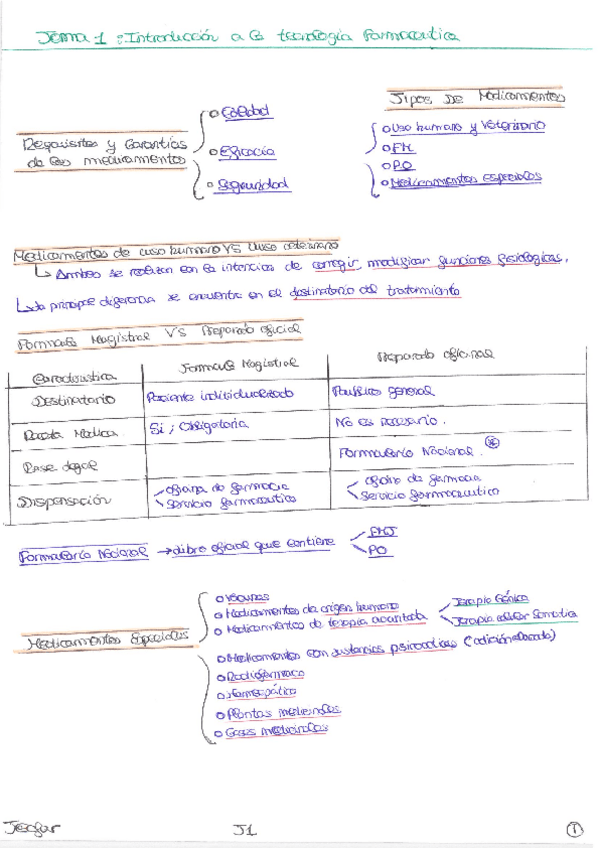 Tema 1: Introducción a la tecnología farmaceutica
Tipos De Medicamentos
Requisitos y Garantías
de los medicamentos
o Calidad
o Eficacia
o Seguridad
o Uso humano y Veterinario
o FM
o PO
o Medicamentos especiales
Medicamentos de uso humano VS Uso veterinario
↳ Ambos se realizan con la intención de corregir, modificar funciones fisiológicas.
↳ La principal diferencia se encuentra en el destinatario del tratamiento
Formula Magistral VS Preparado oficial
Característica Formula Magistral Preparado oficinal
Destinatario Paciente individualizado Público general
Receta Médica Si; Obligatoria No es necesario.
Base legal Formulario Nacional. *
Dispensación oficina de farmacia oficina de farmacia
servicio farmaceutico servicio farmaceutico
Formulario Nacional → Libro oficial que contiene
PO
Medicamentos Especiales
o Vacunas
o Medicamentos de origen humano
o Medicamentos de terapia avanzada
Terapia Génica
Terapia celular Somatica
o Medicamentos con sustancias psicoactivas
o Radiofármaco
o Homeopático
o Plantas medicinales
o Gases medicinales
T1
1